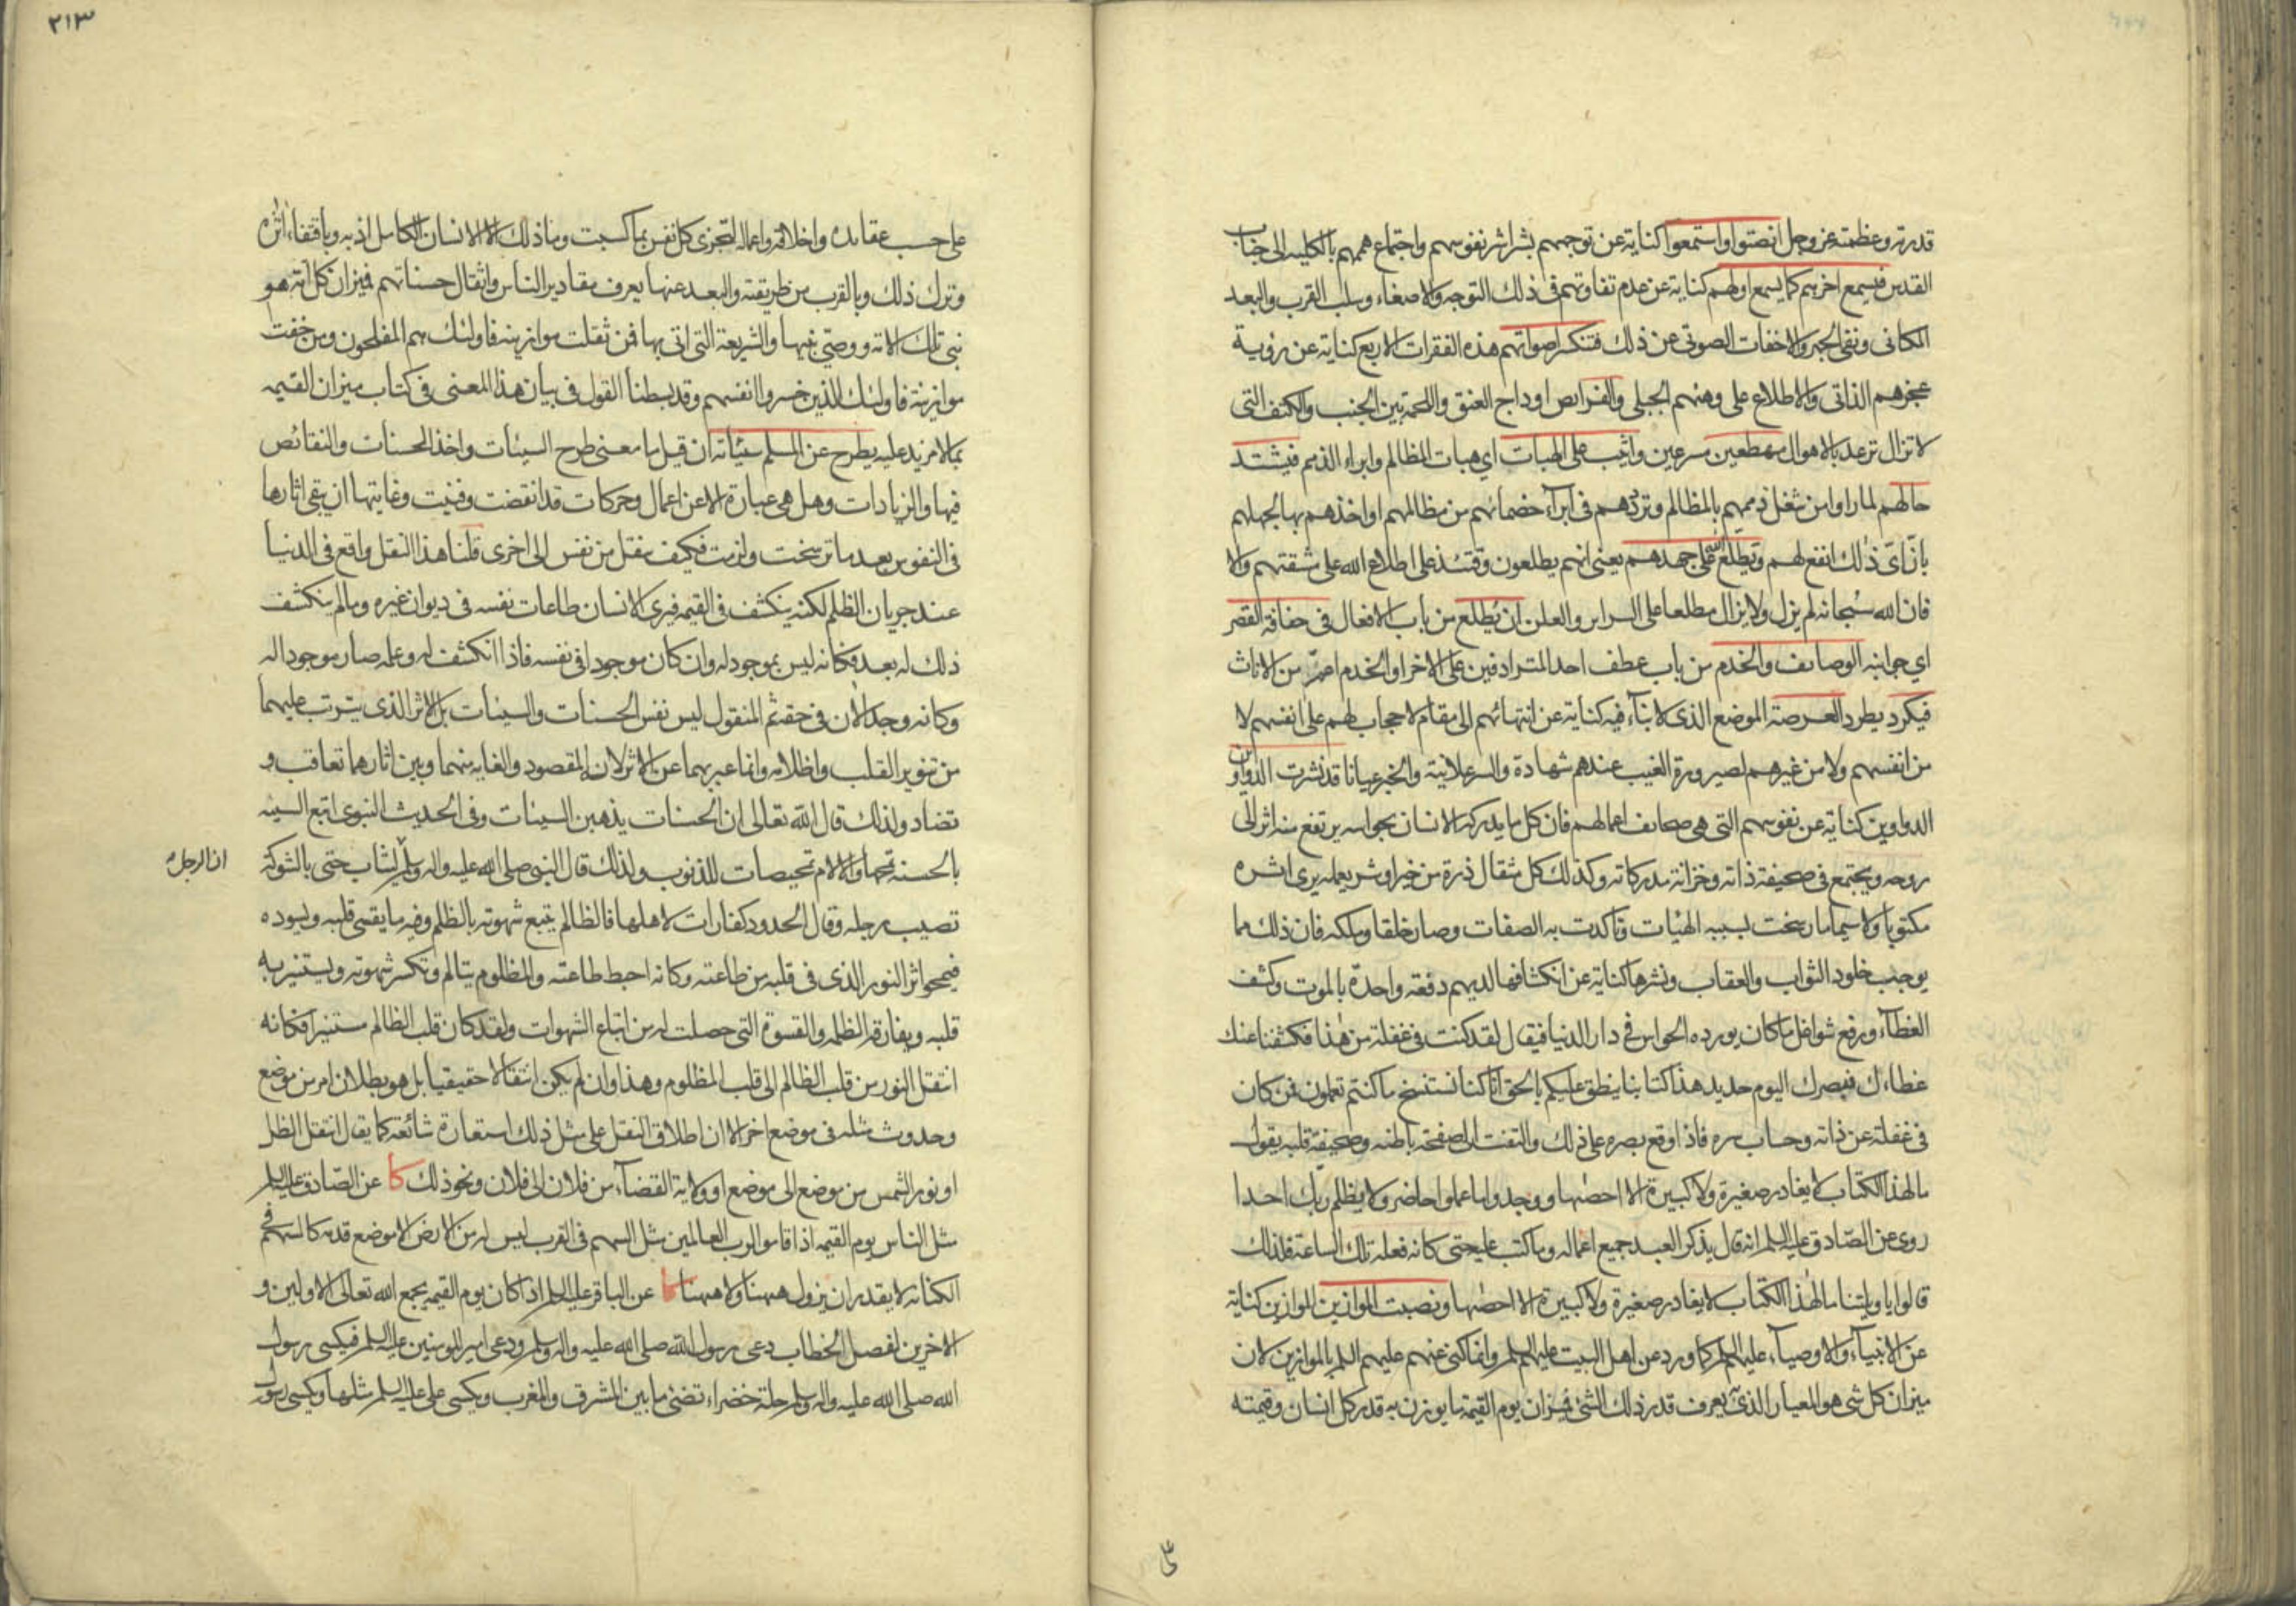 قدرته وعظمته عز وجل انصتوا واستمعوا كناية عن توجههم بشراشر نفوسهم واجتماع هممهم بالكلية الى جناب
القدس فيسمع اخرهم كما يسمع اولهم كناية عن عدم تفاوتهم في ذلك التوجه والاصغاء وسلب القرب والبعد
المكاني ونفي الجهر والاخفات الصوتي عن ذلك فتنكسر اصواتهم هذه الفقرات الاربع كناية عن رؤية
عجزهم الذاتي والاطلاع على وهنهم الجبلي والفرايص اوداج العنق واللحمة بين الجنب والكتف التي
لا تزال ترعد بالاهوال مهطعين مسرعين واثيب على الهبات اي هبات المظالم وابراء الذمم فيشتد
حالهم لما راوا من شغل ذممهم بالمظالم وترددهم في ابراء خصمائهم من مظالمهم او اخذهم بها لجهلهم
بان اي ذلك انفع لهم ويطلع الله على جهدهم يعني انهم يطلعون وقتئذ على اطلاع الله على مشقتهم والا
فان الله سبحانه لم يزل ولا يزال مطلعا على السراير والعلن ان يطلع من باب الافعال في حفافة القصر
اي جوانبه الوصايف والخدم من باب عطف احد المترادفين على الاخر او الخدم اعم من الاناث
فيكرد يطرد العرصة الموضع الذي لا بناء فيه كناية عن انتهائهم الى مقام لا حجاب لهم على انفسهم لا
من انفسهم ولا من غيرهم لصيرورة الغيب عندهم شهادة والسر علانية والخبر عيانا قد نشرت الدواوين
الدواوين كناية عن نفوسهم التي هي صحايف اعمالهم فان كل ما يدركه الانسان بحواسه يرتفع منه اثر الى
روحه ويجتمع في صحيفة ذاته وخزانة مدركاته وكذلك كل مثقال ذرة من خير او شر يعمله يرى اثره
مكتوبا ولا سيما ما رسخت بسببه الهيئات وتاكدت به الصفات وصار خلقا وملكة فان ذلك مما
يوجب خلود الثواب والعقاب ونشرها كناية عن انكشافها لديهم دفعة واحدة بالموت وكشف
الغطاء ورفع شواغل ما كان يورده الحواس في دار الدنيا فيقال لقد كنت في غفلة من هذا فكشفنا عنك
غطاءك فبصرك اليوم حديد هذا كتابنا ينطق عليكم بالحق انا كنا نستنسخ ما كنتم تعملون فمن كان
في غفلة عن ذاته وحساب سره فاذا وقع بصره على ذلك والتفت الى صفحة باطنه وصحيفة قلبه يقول
ما لهذا الكتاب لا يغادر صغيرة ولا كبيرة الا احصها ووجدوا ما عملوا حاضرا ولا يظلم ربك احدا
روى عن الصادق عليه السلم انه قال يذكر العبد جميع اعماله وما كتب عليه حتى كانه فعله تلك الساعة فلذلك
قالوا يا ويلتنا ما لهذا الكتاب لا يغادر صغيرة ولا كبيرة الا احصها ونصبت الموازين الموازين كناية
عن الانبياء والاوصياء عليهم السلم كما ورد عن اهل البيت عليهم السلم وانما كنى عنهم عليهم السلم بالموازين لان
ميزان كل شي هو المعيار الذي يعرف قدر ذلك الشئ فميزان يوم القيمة ما يوزن به قدر كل انسان وقيمته
٢١٣
على حسب عقايده واخلاقه واعماله لتجزى كل نفس بما كسبت وما ذلك الا الانسان الكامل اذ به وباقتفاء اثره
وترك ذلك وبالقرب من طريقته والبعد عنها يعرف مقادير الناس واثقال حسناتهم فميزان كل امة هو
نبي تلك الامة ووصي نبيها والشريعة التي اتى بها فمن ثقلت موازينه فاولئك هم المفلحون ومن خفت
موازينه فاولئك الذين خسروا انفسهم وقد بسطنا القول في بيان هذا المعنى في كتاب ميزان القيمه
بما لا مزيد عليه يطرح عن المسلم سيئاته ان قيل ما معنى طرح السيئات واخذ الحسنات والنقائص
فيها والزيادات وهل هي عبارة الا عن اعمال وحركات قد انقضت وفنيت وغايتها ان يبقى اثارها
في النفوس بعد ما ترسخت ولزمت فكيف ينقل من نفس الى اخرى قلنا هذا النقل واقع في الدنيا
عند جريان الظلم لكنه ينكشف في القيمه فيرى الانسان طاعات نفسه في ديوان غيره وما لم ينكشف
ذلك له بعد فكانه ليس بموجود له وان كان موجودا في نفسه فاذا انكشف له وعلمه صار موجودا له
وكانه وجد الان في حقه ثم المنقول ليس نفس الحسنات والسيئات بل الاثر الذي يترتب عليهما
من تنوير القلب واظلامه وانما عبر بهما عن الاثر لانه المقصود والغاية منهما وبين اثارهما تعاقب و
تضاد ولذلك قال الله تعالى ان الحسنات يذهبن السيئات وفي الحديث النبوي اتبع السيئه
بالحسنه تمحها والالام تمحيصات للذنوب ولذلك قال النبي صلى الله عليه واله وسلم ليثاب حتى بالشوكة
ان الرجل
تصيب رجله وقال الحدود كفارات لاهلها فالظالم يتبع شهوته بالظلم وفيه ما يقسى قلبه ويسوده
فيمحو اثر النور الذي في قلبه من طاعته وكانه احبط طاعته والمظلوم يتالم وتكسر شهوته ويستنير به
قلبه ويفارقه الظلمه والقسوة التي حصلت له من اتباع الشهوات ولقد كان قلب الظالم مستنيرا فكانه
انتقل النور من قلب الظالم الى قلب المظلوم وهذا وان لم يكن انتقالا حقيقيا بل هو بطلان امر من موضع
وحدوث مثله في موضع اخر الا ان اطلاق النقل على مثل ذلك استعارة شائعة كما يقال انتقل الظل
او نور الشمس من موضع الى موضع او ولاية القضاء من فلان الى فلان ونحو ذلك كا عن الصادق عليه السلم
مثل الناس يوم القيمه اذا قاموا لرب العالمين مثل السهم في القرب ليس له من الارض الا موضع قدمه كالسهم في
الكنانه لا يقدر ان يزول ههنا ولا ههنا كا عن الباقر عليه السلم اذا كان يوم القيمه يجمع الله تعالى الاولين و
الاخرين لفصل الخطاب دعى رسول الله صلى الله عليه واله وسلم ودعى امير المومنين عليه السلم فيكسى رسول
الله صلى الله عليه واله وسلم حلة خضراء تضئ ما بين المشرق والمغرب ويكسى على عليه السلم مثلها ويكسى رسول